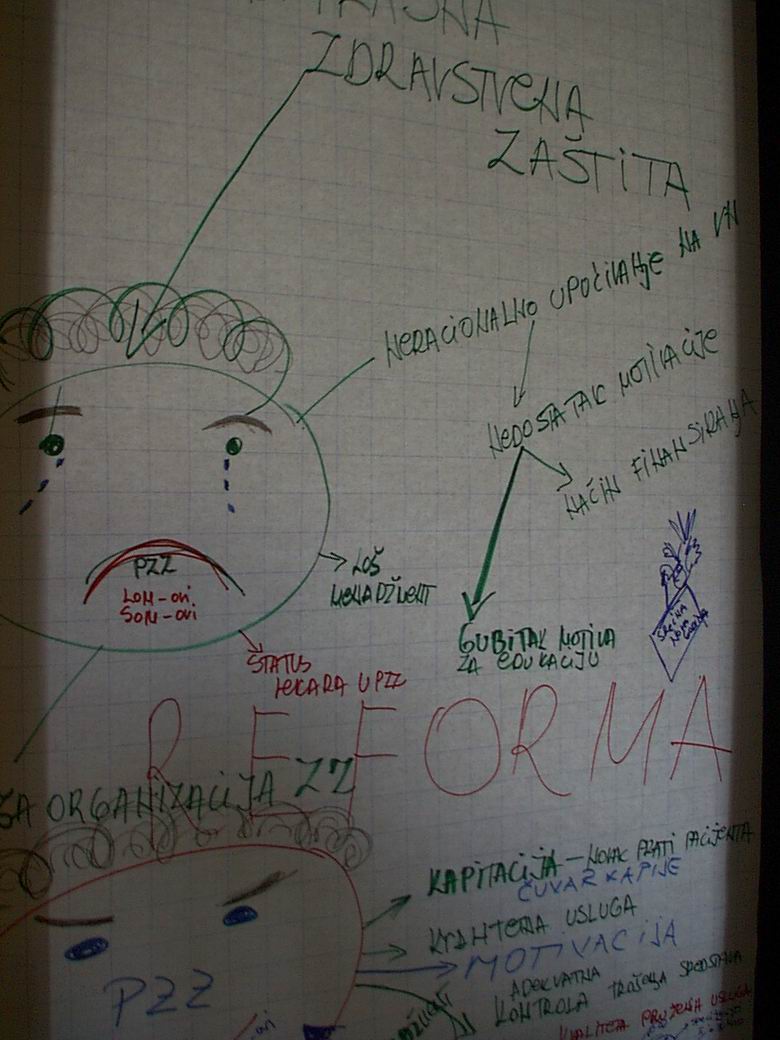 ZDRAVSTVENA
ZAŠTITA
NERACIONALNO UPUĆIVANJE NA VN
NEDOSTATAK MOTIVACIJE
NAČIN FINANSIRANJA
PZZ
LOM-ovi
SOM-ovi
LOŠ
MENADŽMENT
GUBITAK MOTIVA
ZA EDUKACIJU
STATUS
LEKARA U PZZ
REFORMA
ŠA ORGANIZACIJA ZZ
KAPITACIJA – NOVAC PRATI PACIJENTA
ČUVAR KAPIJE
KVANTENA USLUGA
MOTIVACIJA
PZZ
ADEKVATNA
KONTROLA TROŠENJA SREDSTAVA
KVALITETA PRUŽENIH USLUGA